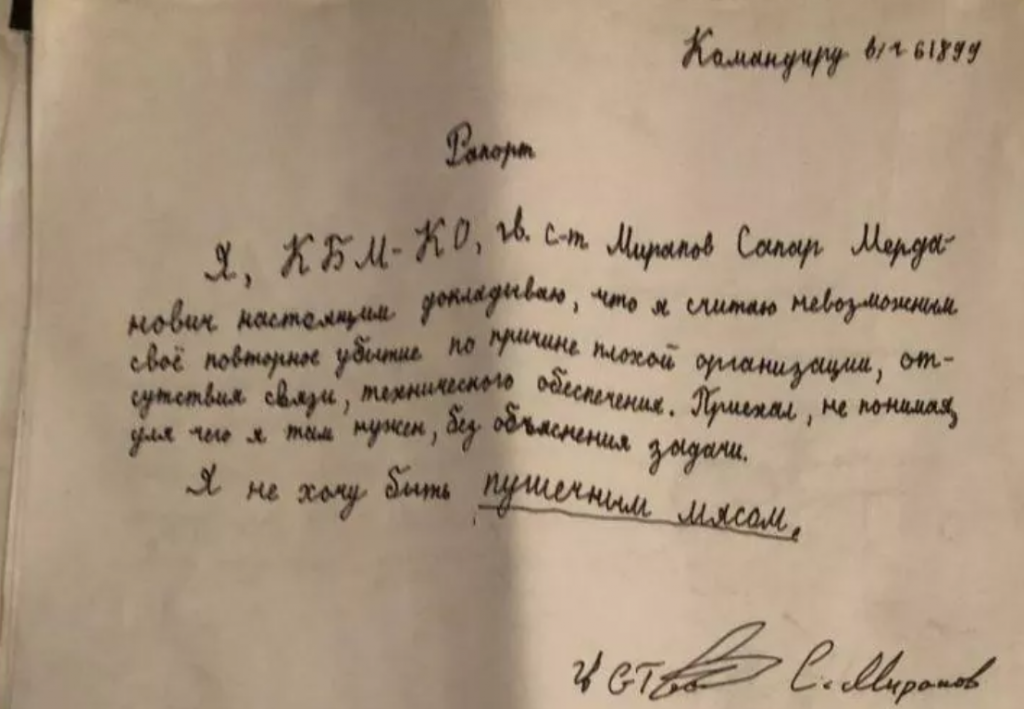 Командиру в/ч 61899
Рапорт
Я, КБМ-КО, гв. с-т Мирапов Сапар Мерда-
нович настоящим докладываю, что я считаю невозможным
своё повторное убытие по причине плохой организации, от-
сутствия связи, технического обеспечения. Приехал, не понимая,
для чего я там нужен, без объяснения задачи.
Я не хочу быть пушечным мясом.
гв СТ С. Мирапов